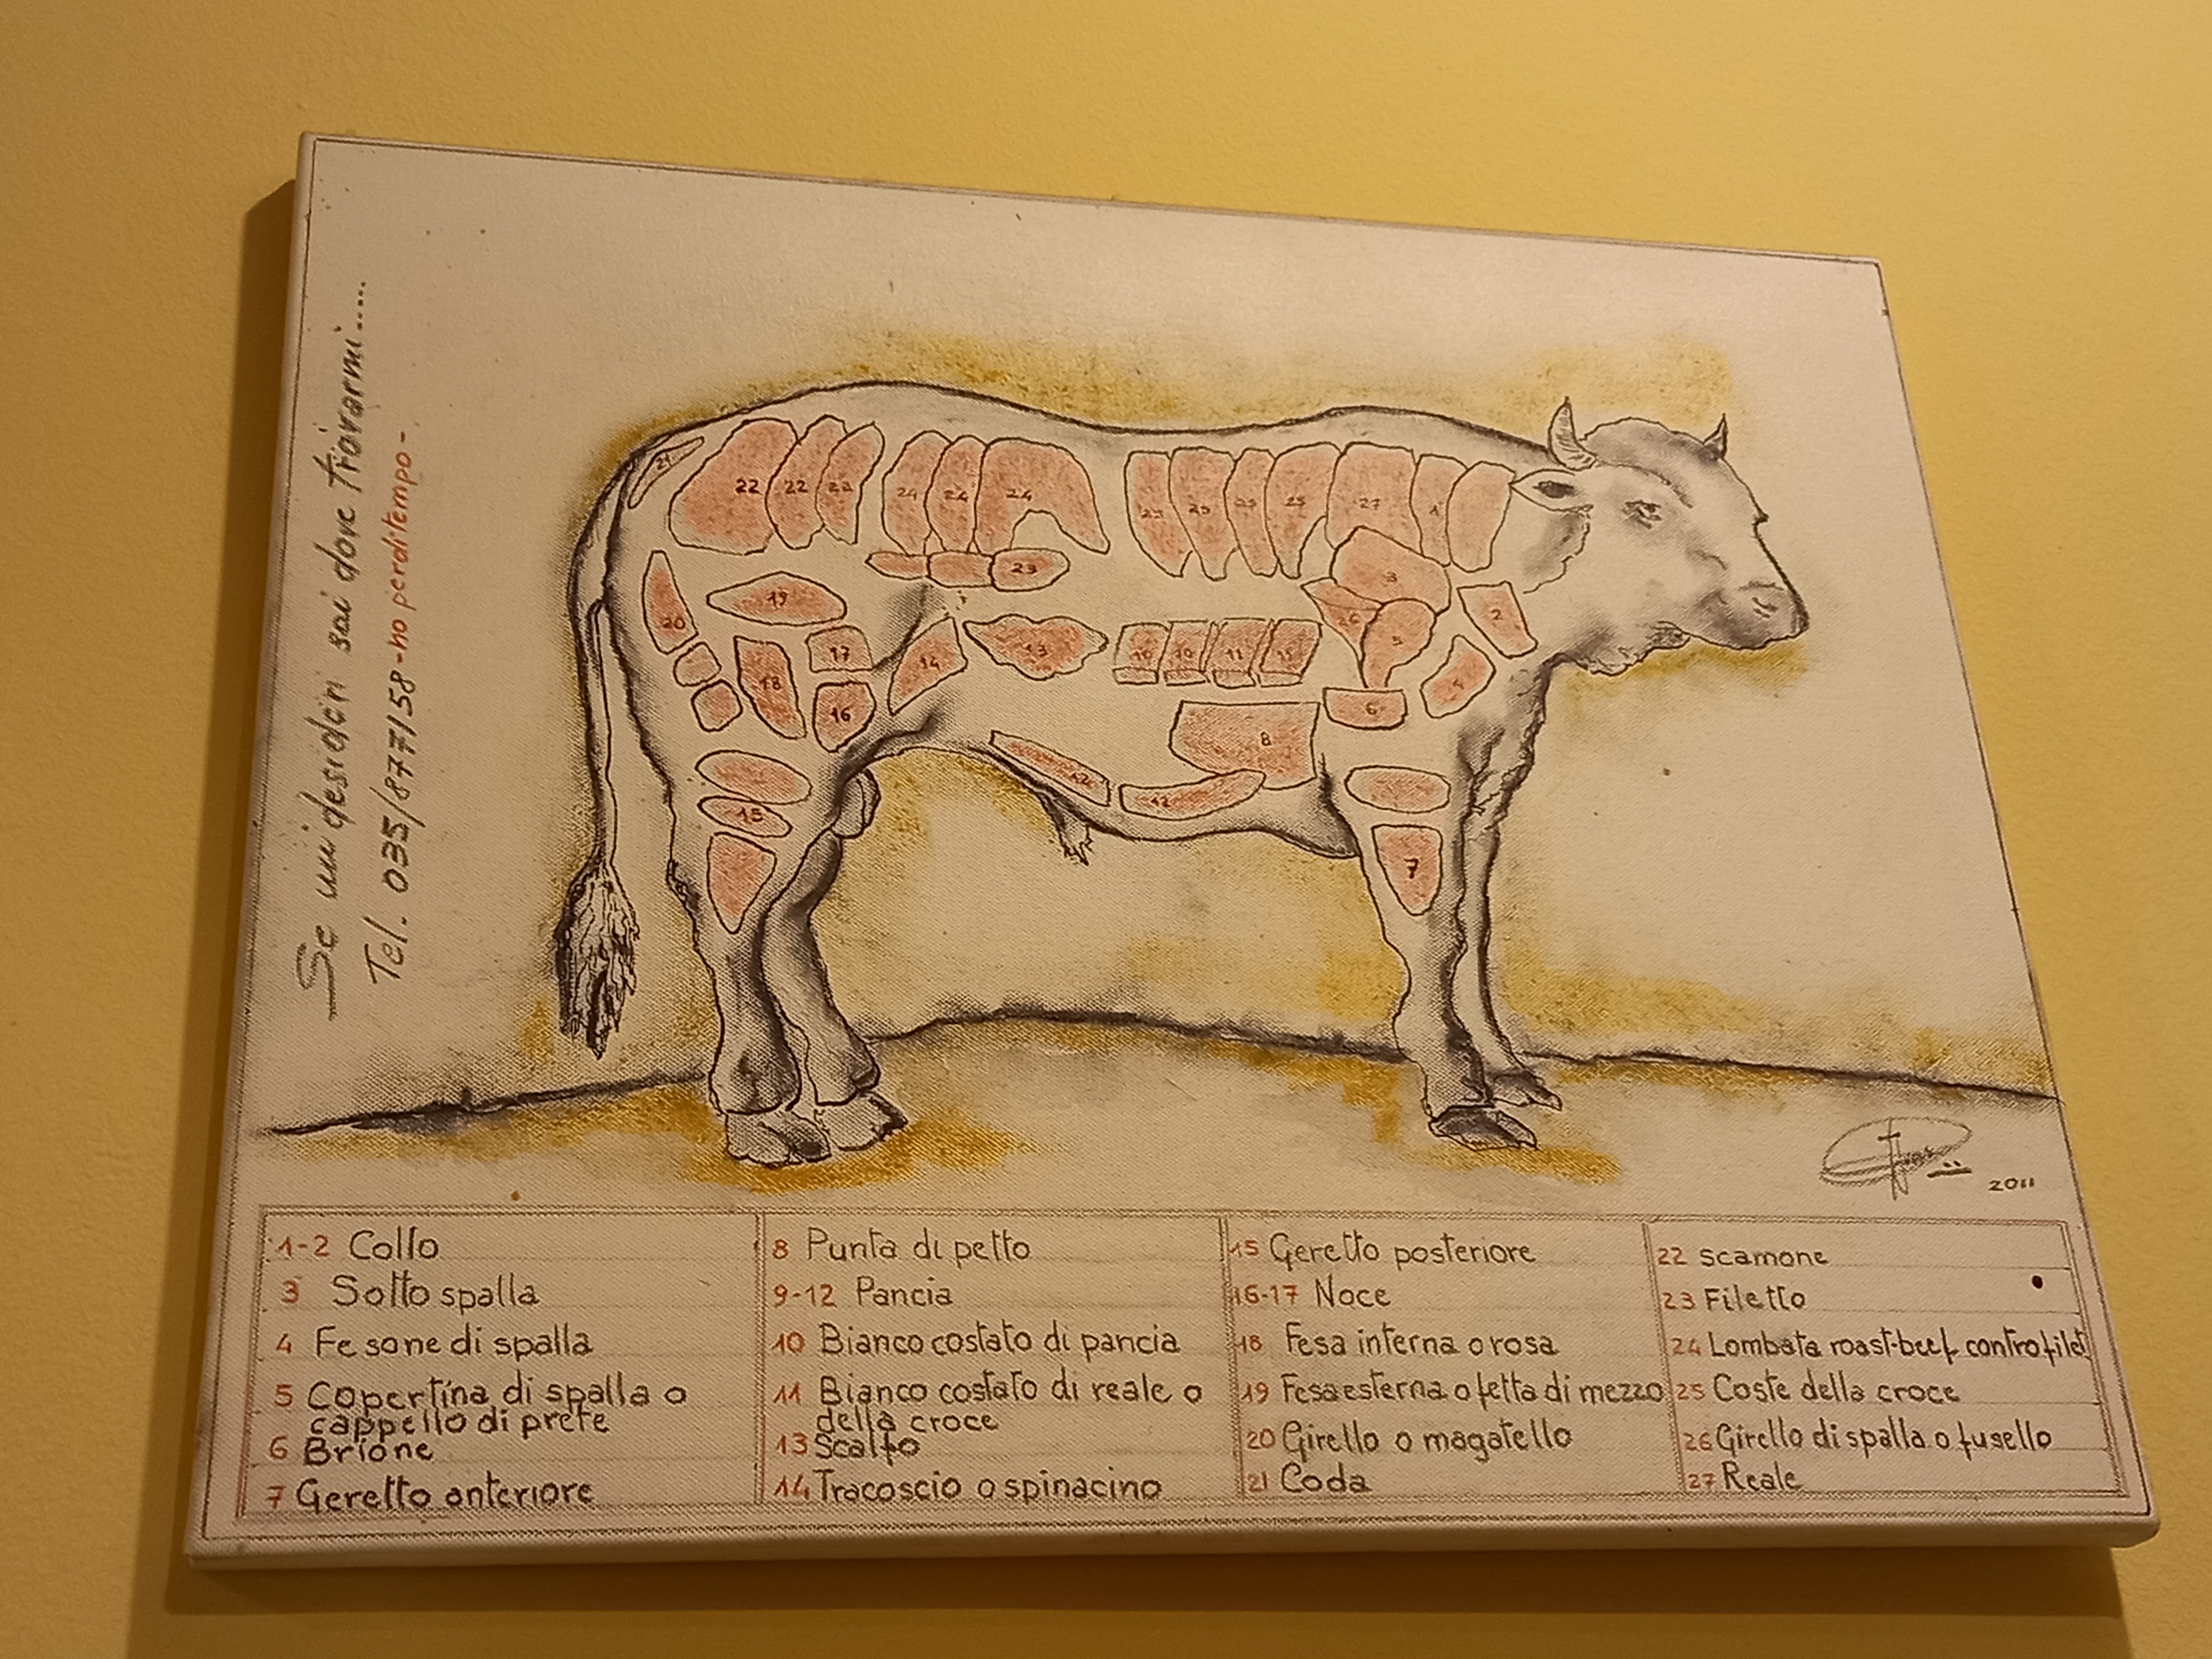 Se mi desideri sai dove trovarmi.....
Tel. 035/877158 - no perditempo -
21
22 22 22 24 24 24
25 25 25 25 27 1
23
3
19
20
26
2
5
17
14
13
10 10 11 11
18
4
16
6
8
12
12
15
7
2011
1-2 Collo
3 Sotto spalla
4 Fesone di spalla
5 Copertina di spalla o
cappello di prete
6 Brione
7 Geretto anteriore
8 Punta di petto
9-12 Pancia
10 Bianco costato di pancia
11 Bianco costato di reale o
della croce
13 Scalfo
14 Tracoscio o spinacino
15 Geretto posteriore
16-17 Noce
18 Fesa interna o rosa
19 Fesa esterna o fetta di mezzo
20 Girello o magatello
21 Coda
22 scamone
23 Filetto
24 Lombata roast-beef controfilet
25 Coste della croce
26 Girello di spalla o fusello
27 Reale